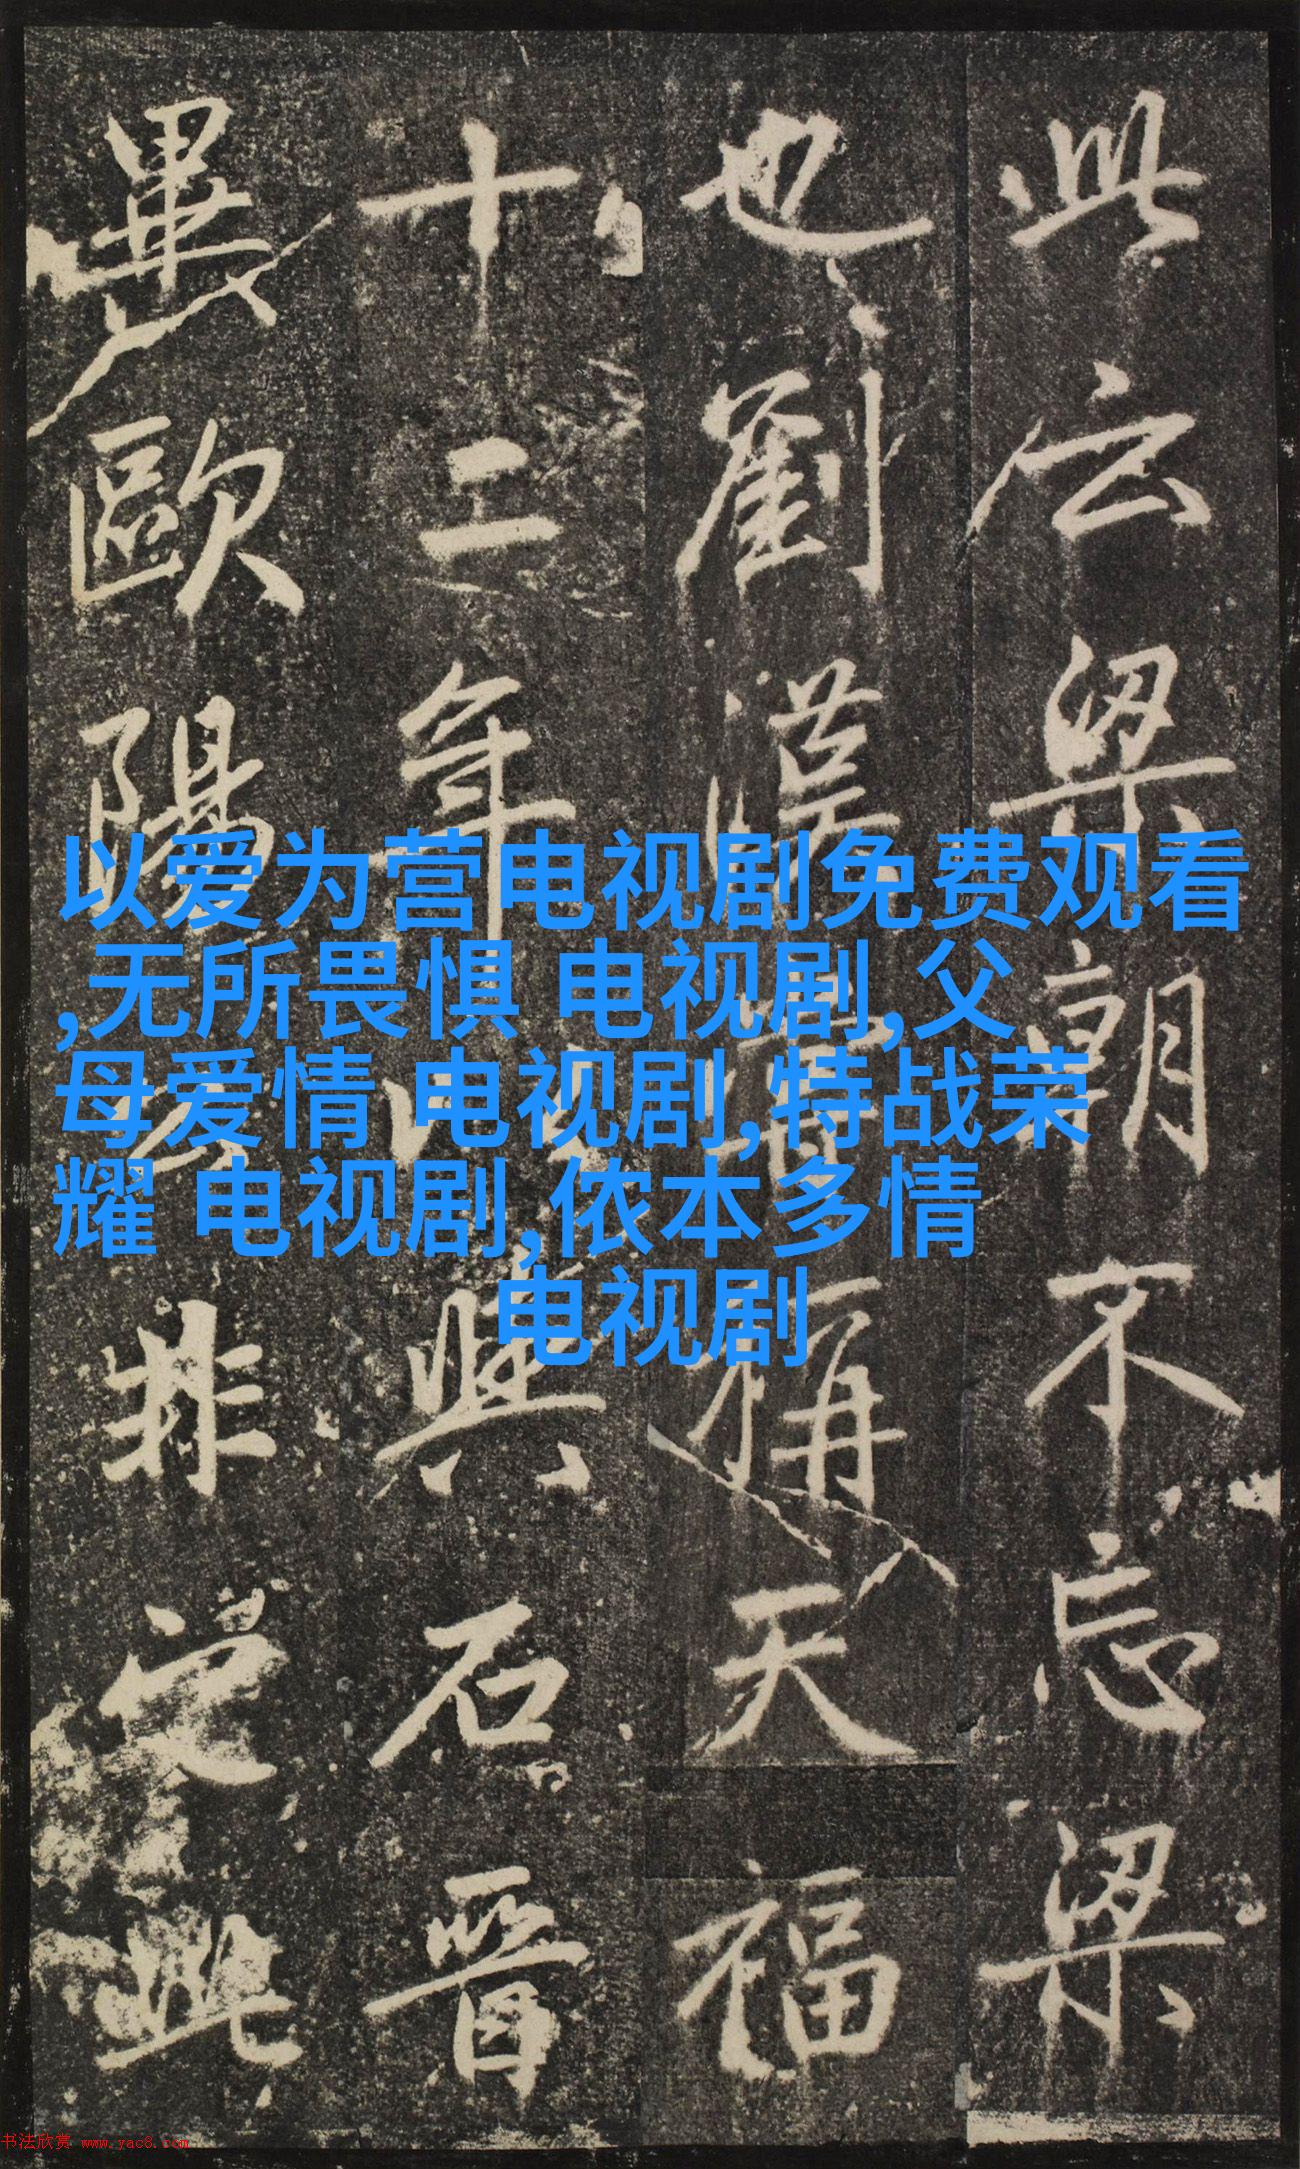 此云梁朝不忘梁
也劉漢稱天福
十二年與石晉
畢歐陽公非此
以爱为营电视剧免费观看
,无所畏惧 电视剧,父
母爱情 电视剧,特战荣
耀 电视剧,侬本多情
电视剧
书法欣赏 www.yac8.com